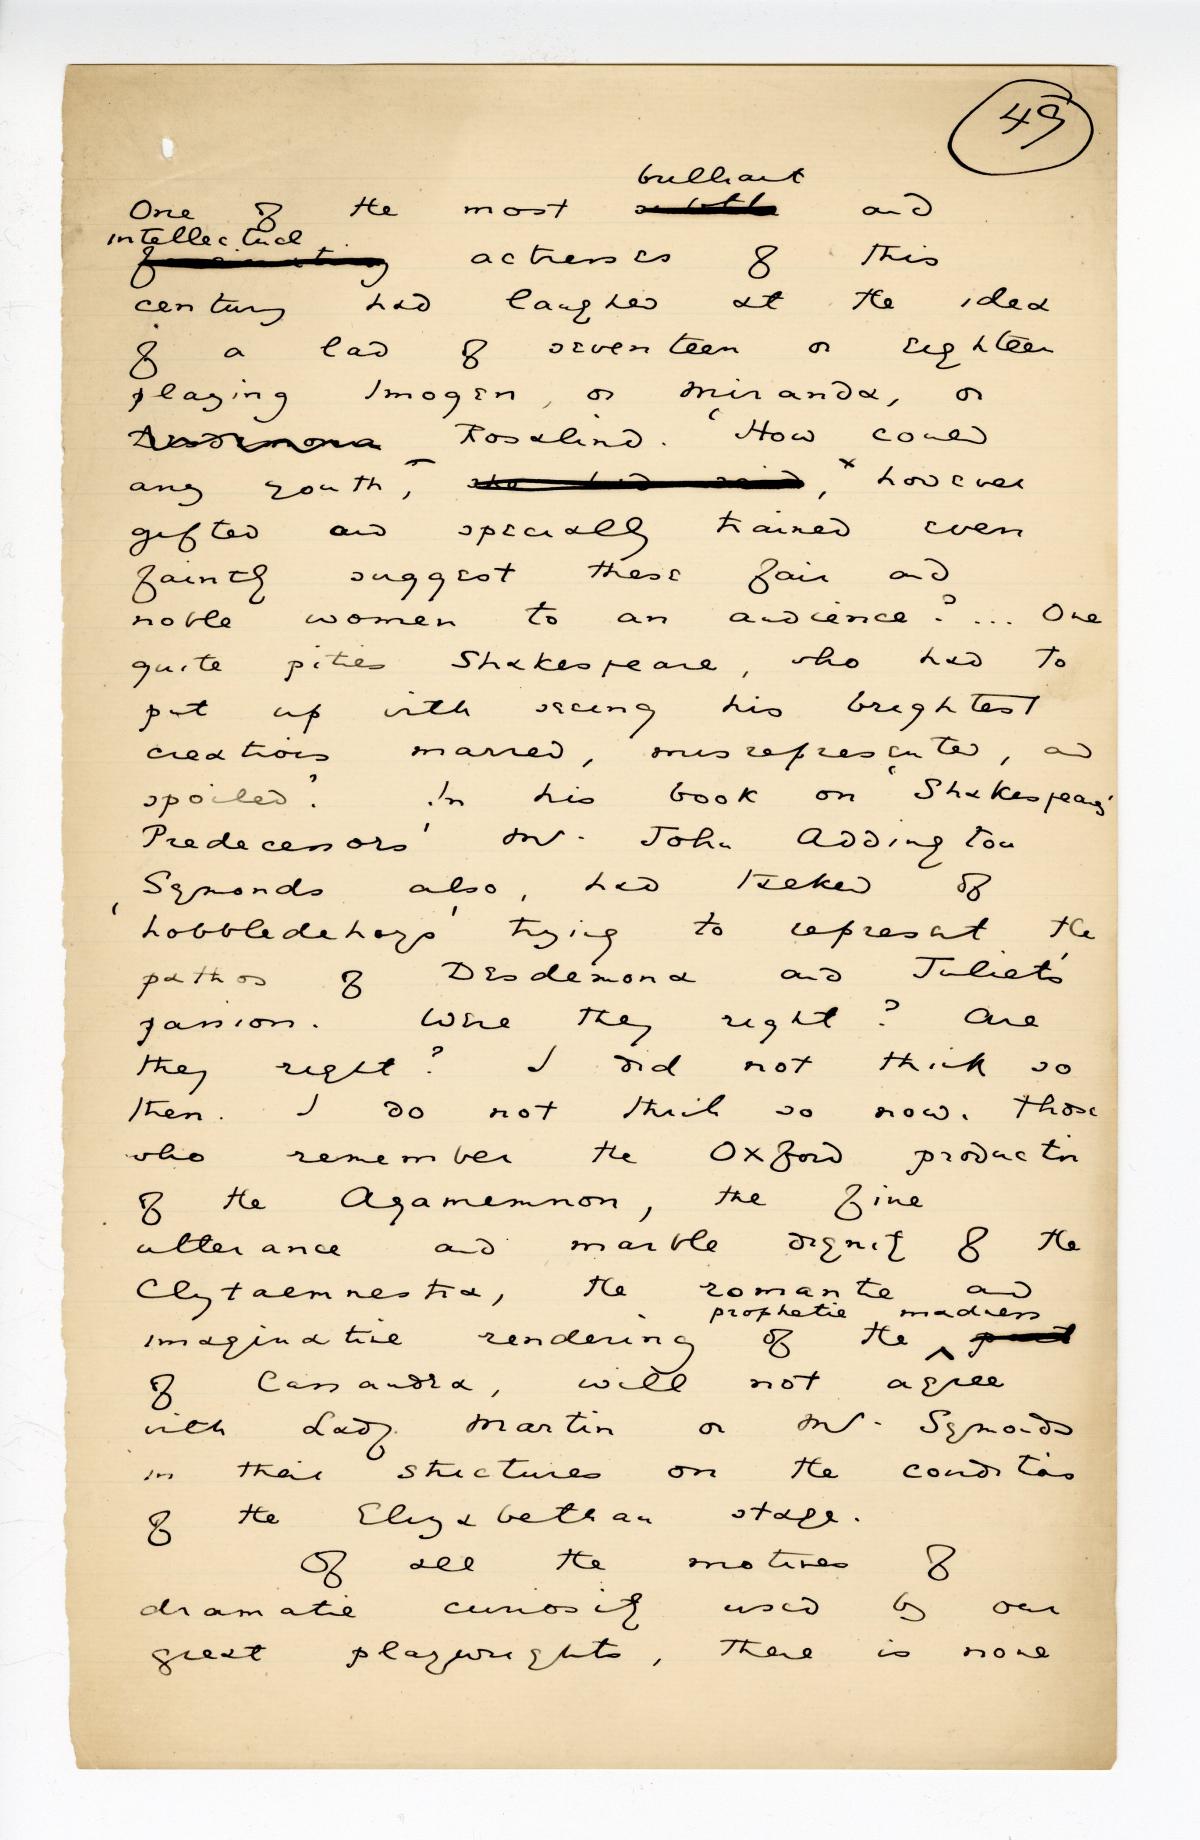 49
brilliant
One of the most subtle and
intellectual
fascinating actresses of this
century had laughed at the idea
of a lad of seventeen or eighteen
playing Imogen, or Miranda, or
Desdemona Rosalind. 'How could
any youth, she had said, however
gifted and specially trained even
faintly suggest these fair and
noble women to an audience? ... One
quite pities Shakespeare, who had to
put up with seeing his brightest
creations marred, misrepresented, and
spoiled'. In his book on 'Shakespeare's
Predecessors' Mr. John Addington
Symonds also, had talked of
'hobbledehoys' trying to represent the
pathos of Desdemona and Juliet's
passion. Were they right? Are
they right? I did not think so
then. I do not think so now. Those
who remember the Oxford production
of the Agamemnon, the fine
utterance and marble dignity of the
Clytaemnestra, the romantic and
prophetic madness
imaginative rendering of the ^ part
of Cassandra, will not agree
with Lady Martin or Mr. Symonds
in their strictures on the condition
of the Elizabethan stage.
Of all the motives of
dramatic curiosity used by our
great playwrights, there is none